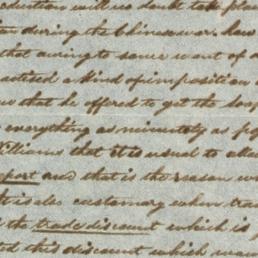 duction will no doubt take plac
ten during the Chinese war. How
that owing to some want of a
actised a kind of imposition
w that he offered to get the
everything as minutely as po
Williams that it is usual to allo
port and that is the reason w
It is also customary when tra
d the trade discount which is
ted this discount which was